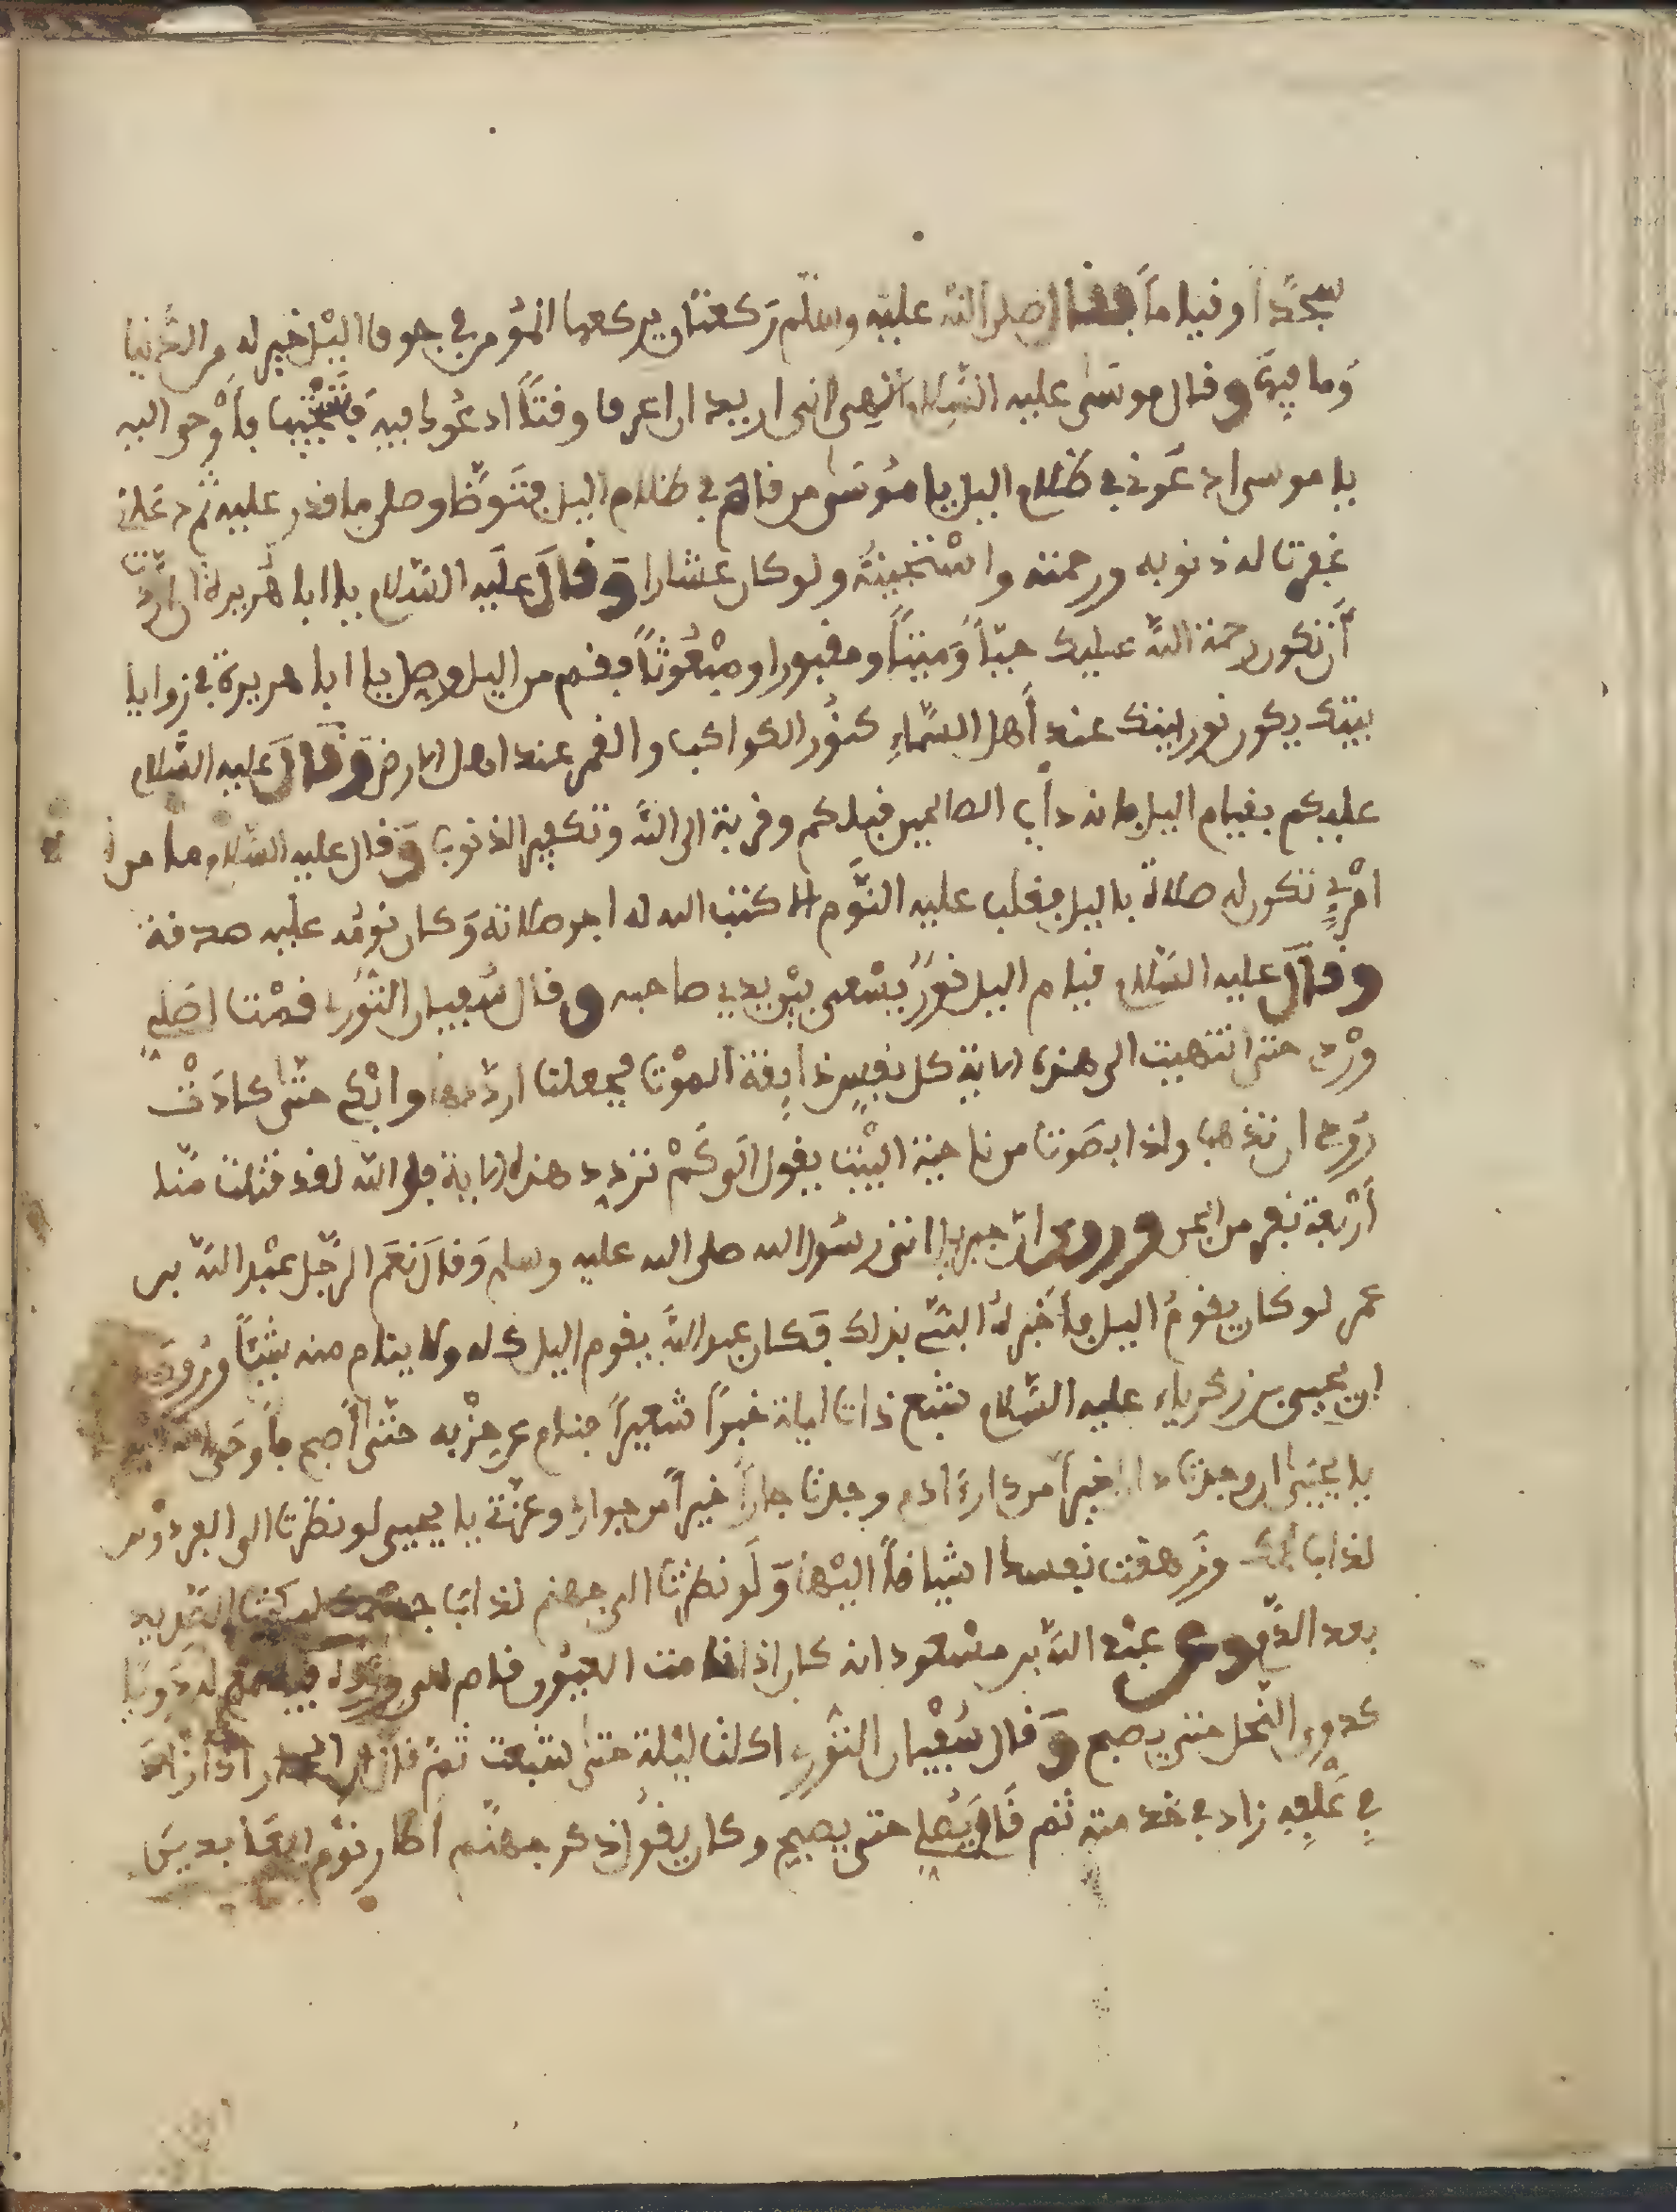 سجّدا وقياما فقال صلى الله عليه وسلم ركعتان يركعهما المؤمن في جوف اليل خير له من الدنيا
وما فيها وقال موسى عليه السلام الهي اني اريد ان اعرف وقتا ادعوك فيه فتستجيب فأوحى اليه
يا موسى ادعوني في ظلام اليل يا موسى من قام في ظلام اليل فتوضأ وصلى ما قدر عليه ثم دعاني
غفرت له ذنوبه ورحمته واستجبته ولو كان عشارا وقال عليه السلام يا ابا هريرة ان اردت
أن تكون رحمة الله عليك حيّا وميّتا ومقبورا ومبعوثا فقم من اليل وصل يا ابا هريرة في زوايا
بيتك يكون نور بيتك عند أهل السماء كنور الكواكب والقمر عند اهل الارض وقال عليه السلام
عليكم بقيام اليل فانه دأب الصالحين قبلكم وقربة الى الله وتكفير الذنوب وقال عليه السلام ما من
امرئ تكون له صلاة باليل فغلب عليه النوم الا كتب الله له اجر صلاته وكان نومه عليه صدقة
وقال عليه السلام قيام اليل نور يسعى بين يدي صاحبه وقال سفيان الثوري قمت اصلي
وردي حتى انتهيت الى هذه الاية كل نفس ذايقة الموت فجعلت ارددها وابكي حتى كادت
روحي ان تذهب واذا بصوت من ناحية البيت يقول الى كم تردد هذه الاية فوالله لقد قتلت منا
أربعة نفر من الجن وروي ان جبريل اتى رسول الله صلى الله عليه وسلم وقال نعم الرجل عبد الله بن
عمر لو كان يقوم اليل فأخبر له النبي بذلك فكان عبد الله يقوم اليل كله ولا ينام منه شيئا وروي
ان يحيى بن زكرياء عليه السلام شبع ذات ليلة خبزا شعيرا فنام عن حزبه حتى أصبح فأوحى الله اليه
يا يحيى ان وجدت دارا خيرا من داري ام وجدت جارا خيرا من جواري وعزتي يا يحيى لو نظرت الى الفردوس
لذاب وزهقت نفسك اشتياقا اليها ولو نظرت الى جهنم لذاب جسمك لبكيت الصديد
بعد الدم وعن عبد الله بن مسعود انه كان اذا نامت العيون قام الى ورده فيسمع له دويا
كدوي النحل حتى يصبح وقال سفيان الثوري اكلت ليلة حتى شبعت ثم قال ان الحمار اذا زاد
في علفه زاد في خدمته ثم قام يصلي حتى يصبح وكان يقول ذكر جهنم اطار نوم العابدين